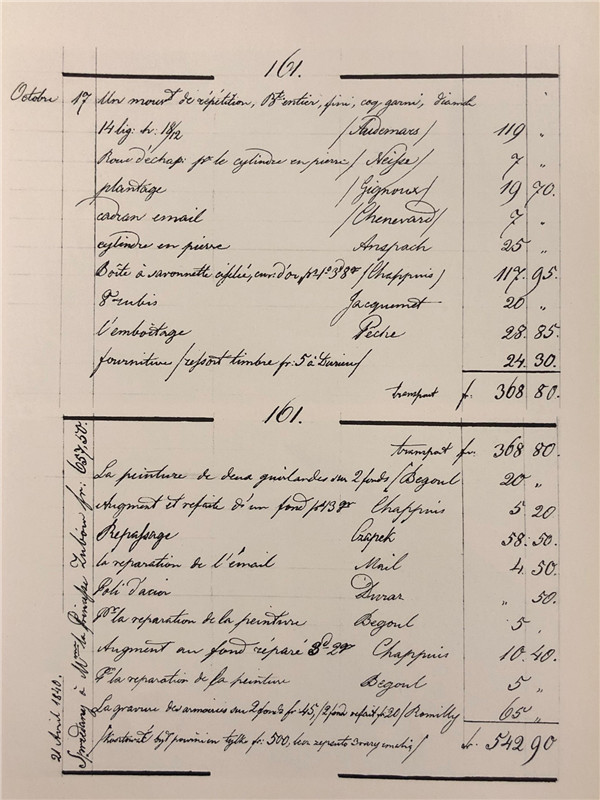 161.
Octobre 17 Un mouvt de répétition, Bt entier, fini, coq garni, diamch "
14 lig: fr: 18/12 /Audemars/ 119 "
Roue d'échap: pr le cylindre en pierre/ Neisse/ 7 "
plantage /Gignoux/ 19 70.
cadran email /Chenevard/ 7 "
cylindre en pierre Anspach 25 "
Boîte à savonnette cisélié, d'or /Chappuis/ 117. 95.
8 rubis Jacquemet 20 "
l'emboîtage Pèche 28. 85.
fourniture /ressort timbre fr: 5 à Durieu/ 24. 30.
transport fr. 368 80.
161.
transport fr. 368 80.
La peinture de deux guirlandes sur 2 fonds /Begoul 20 "
Augment et refaite d'un fond Chappuis 5 20
Repassage Czapek 58. 50.
la reparation de l'émail Mail 4. 50.
Poli d'acier Durar " 50.
Pr la reparation de la peinture Begoul 5 "
Augment au fond réparé Chappuis 10. 40.
Pr la reparation de la peinture Begoul 5 "
La gravure des armoiries sur 2 fonds fr 45, /2 fond refait fr 20/ Romilly 65 "
/Kosztował być powinien tylko fr: 500, bez emalii/ fr. 542 90
21 Avril 1840.
à Mme la Princesse Zubow fr: 657,50.